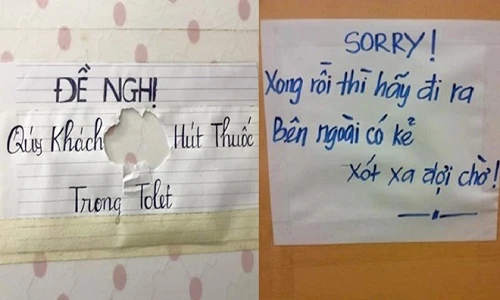 ĐỀ NGHỊ
Qúy Khách Hút Thuốc
Trong Tolet
SORRY!
Xong rồi thì hãy đi ra
Bên ngoài có kẻ
xót xa đợi chờ!